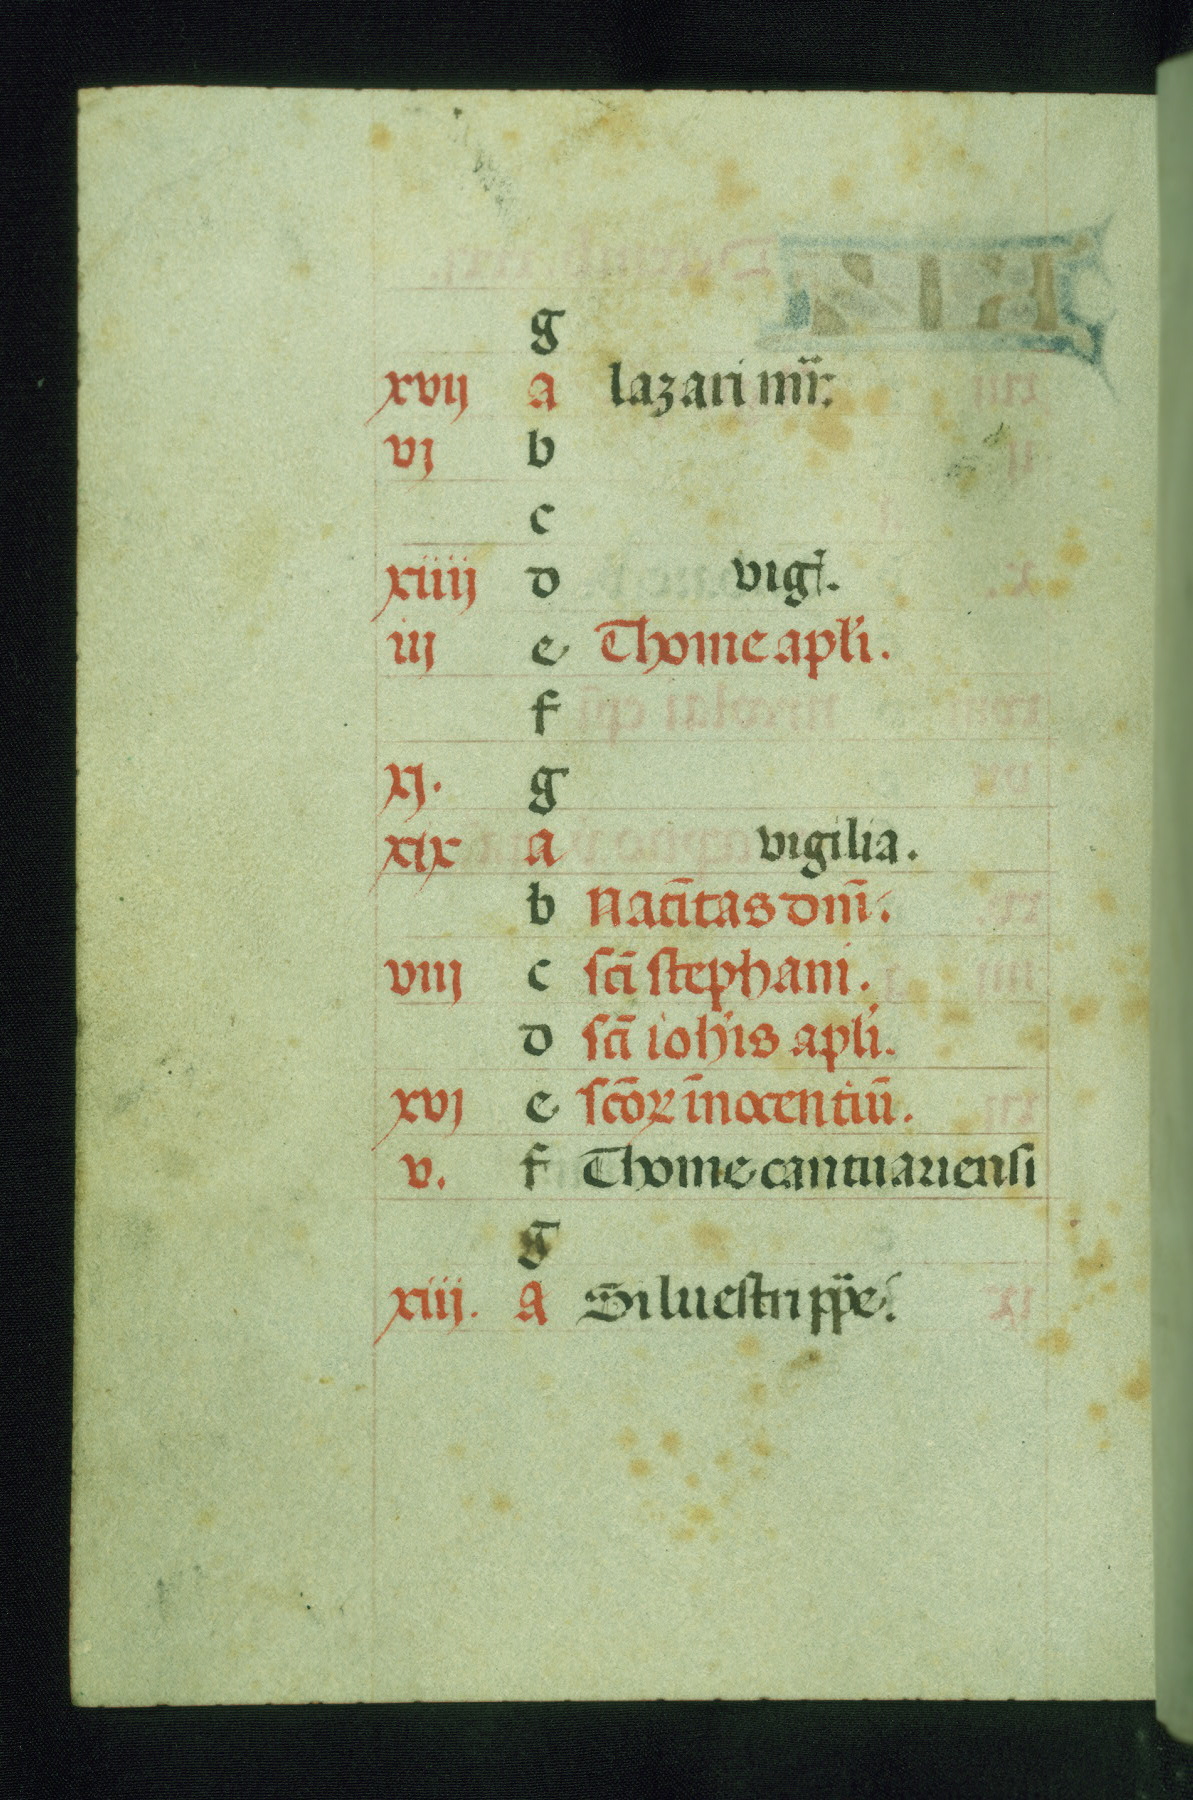 g
xvij a lazari mr̃:
vj b
c
xiiij d vigł.
iij e Thome apłi.
f
xj. g
xix a vigilia.
b Natĩtas dnĩ.
viij c sctĩ stephani.
d sctĩ ioh'is apłi.
xvj e sctõꝝ ĩnocentiũ.
v. f Thome cantuariensi
g
xiij. a Siluestri pp̃e.